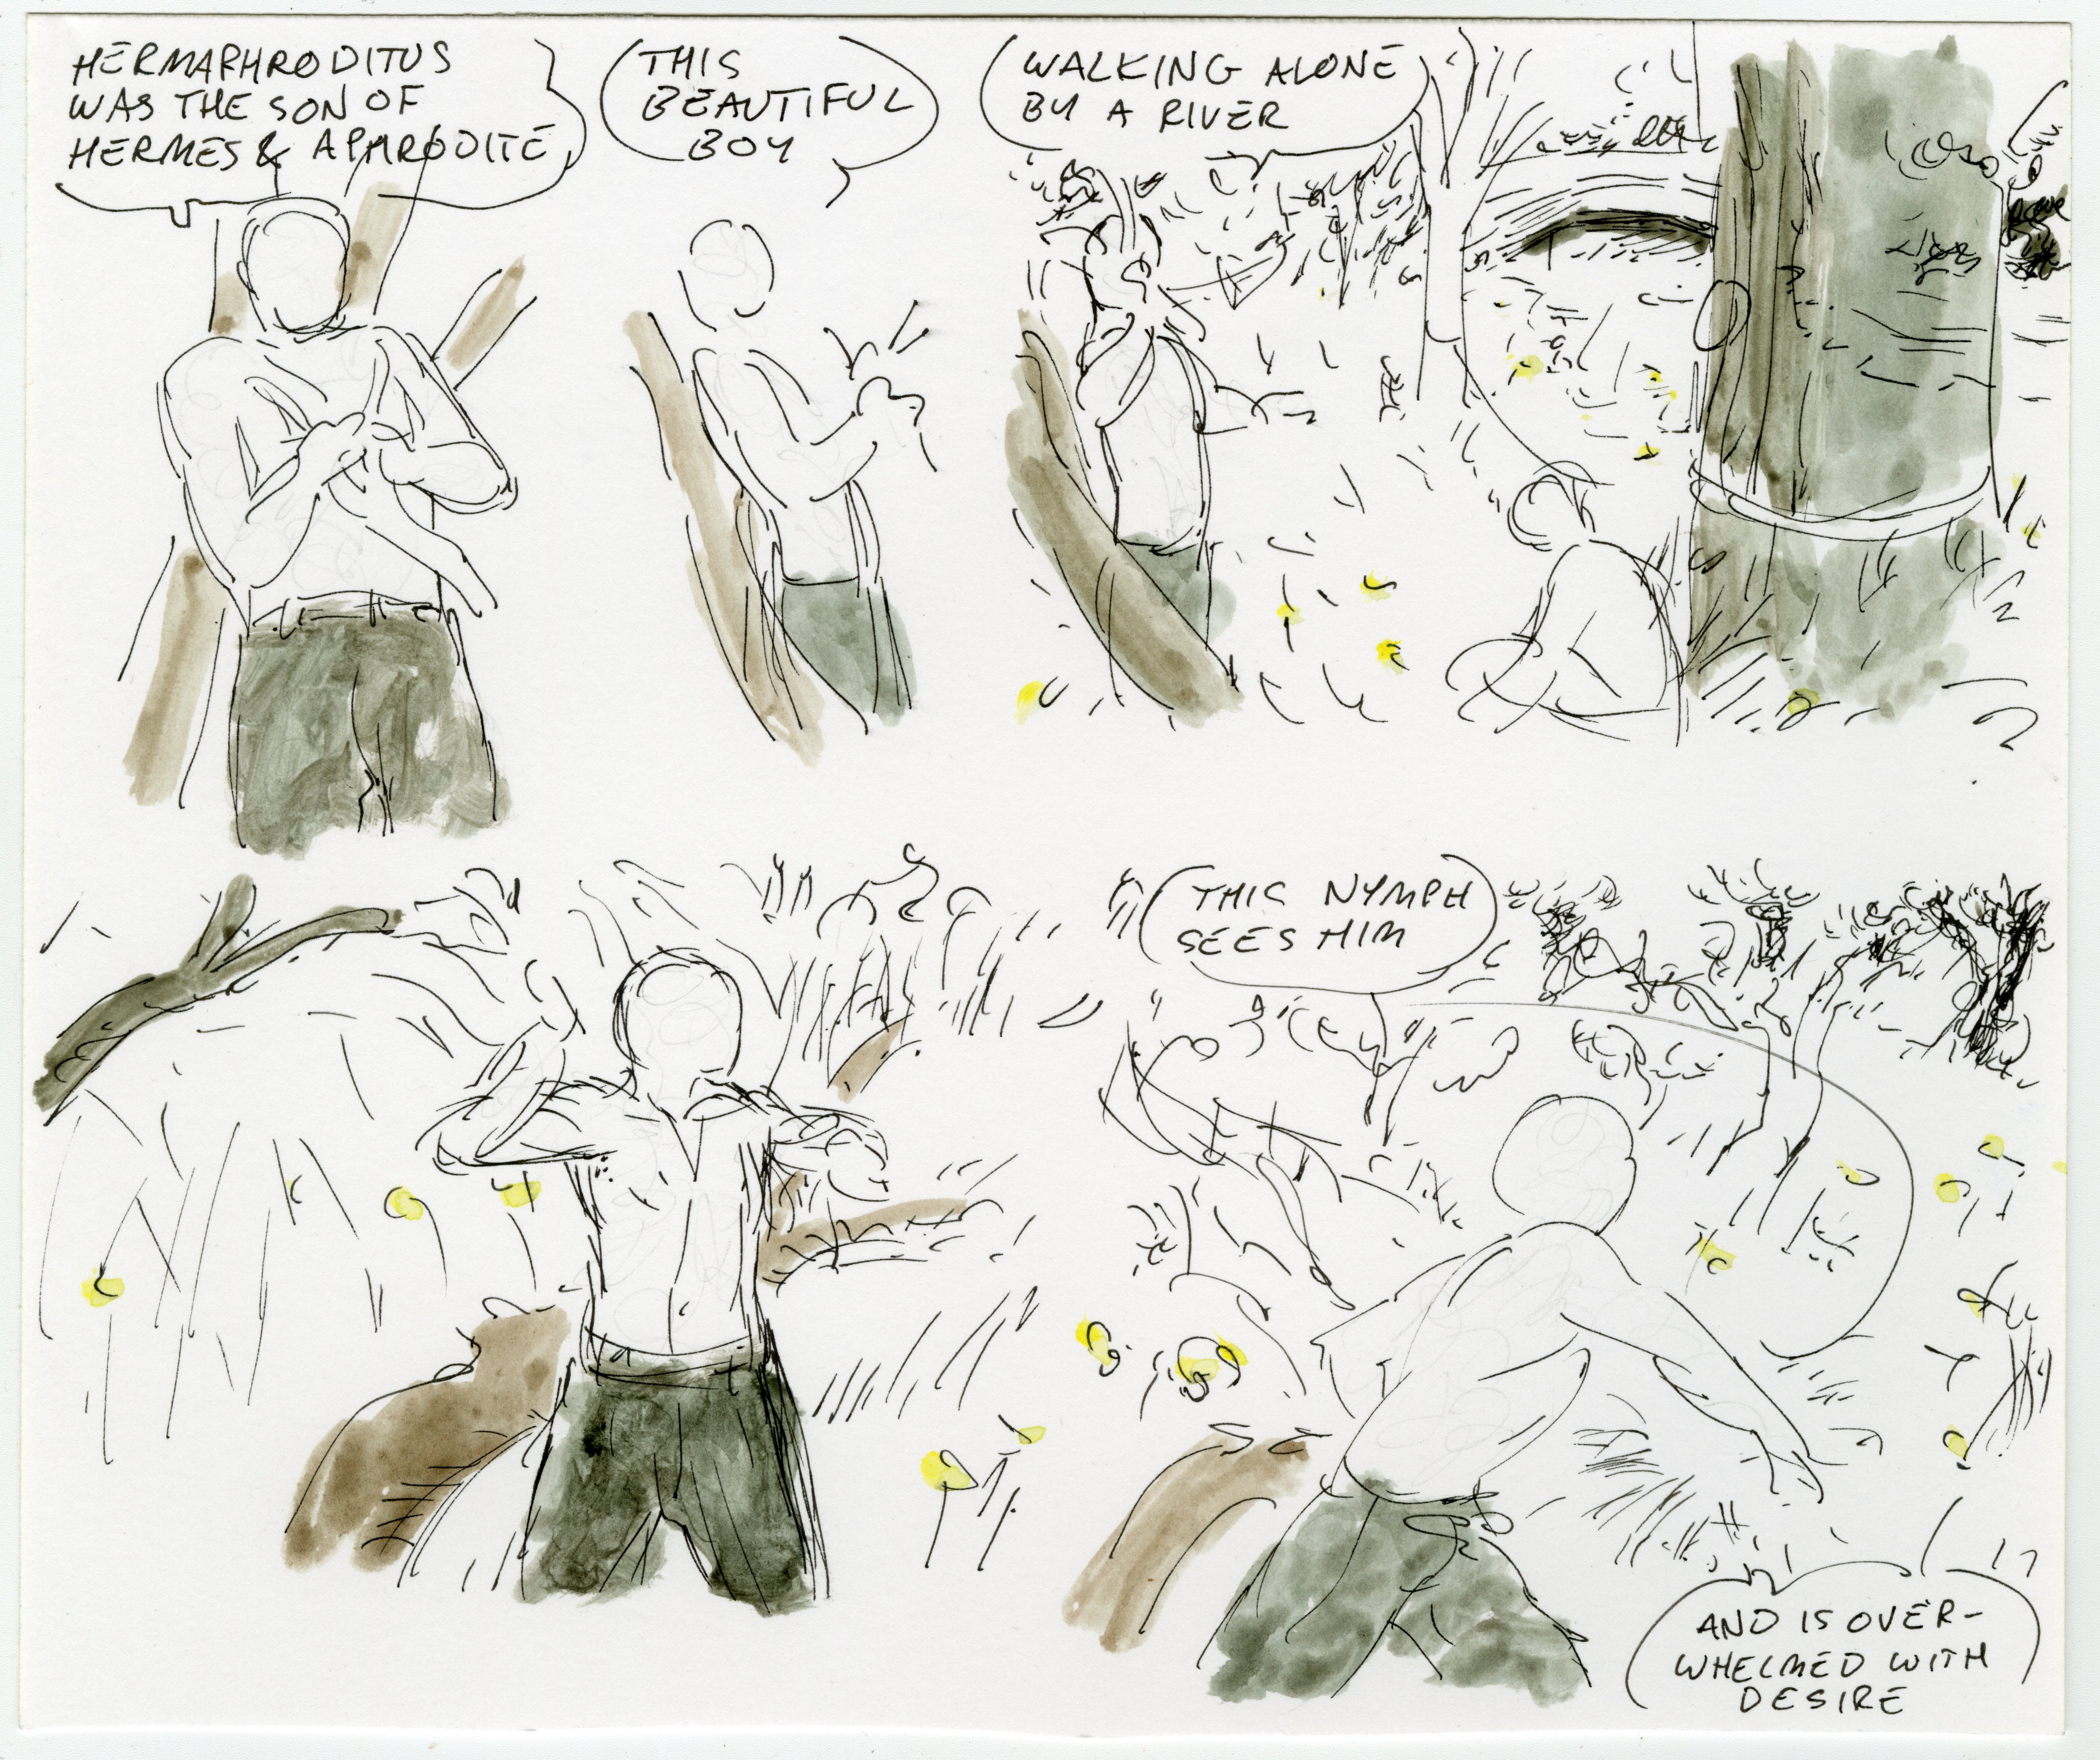 HERMAPHRODITUS
WAS THE SON OF
HERMES & APHRODITE
THIS
BEAUTIFUL
BOY
WALKING ALONE
BY A RIVER
THIS NYMPH
SEES HIM
AND IS OVER-
WHELMED WITH
DESIRE